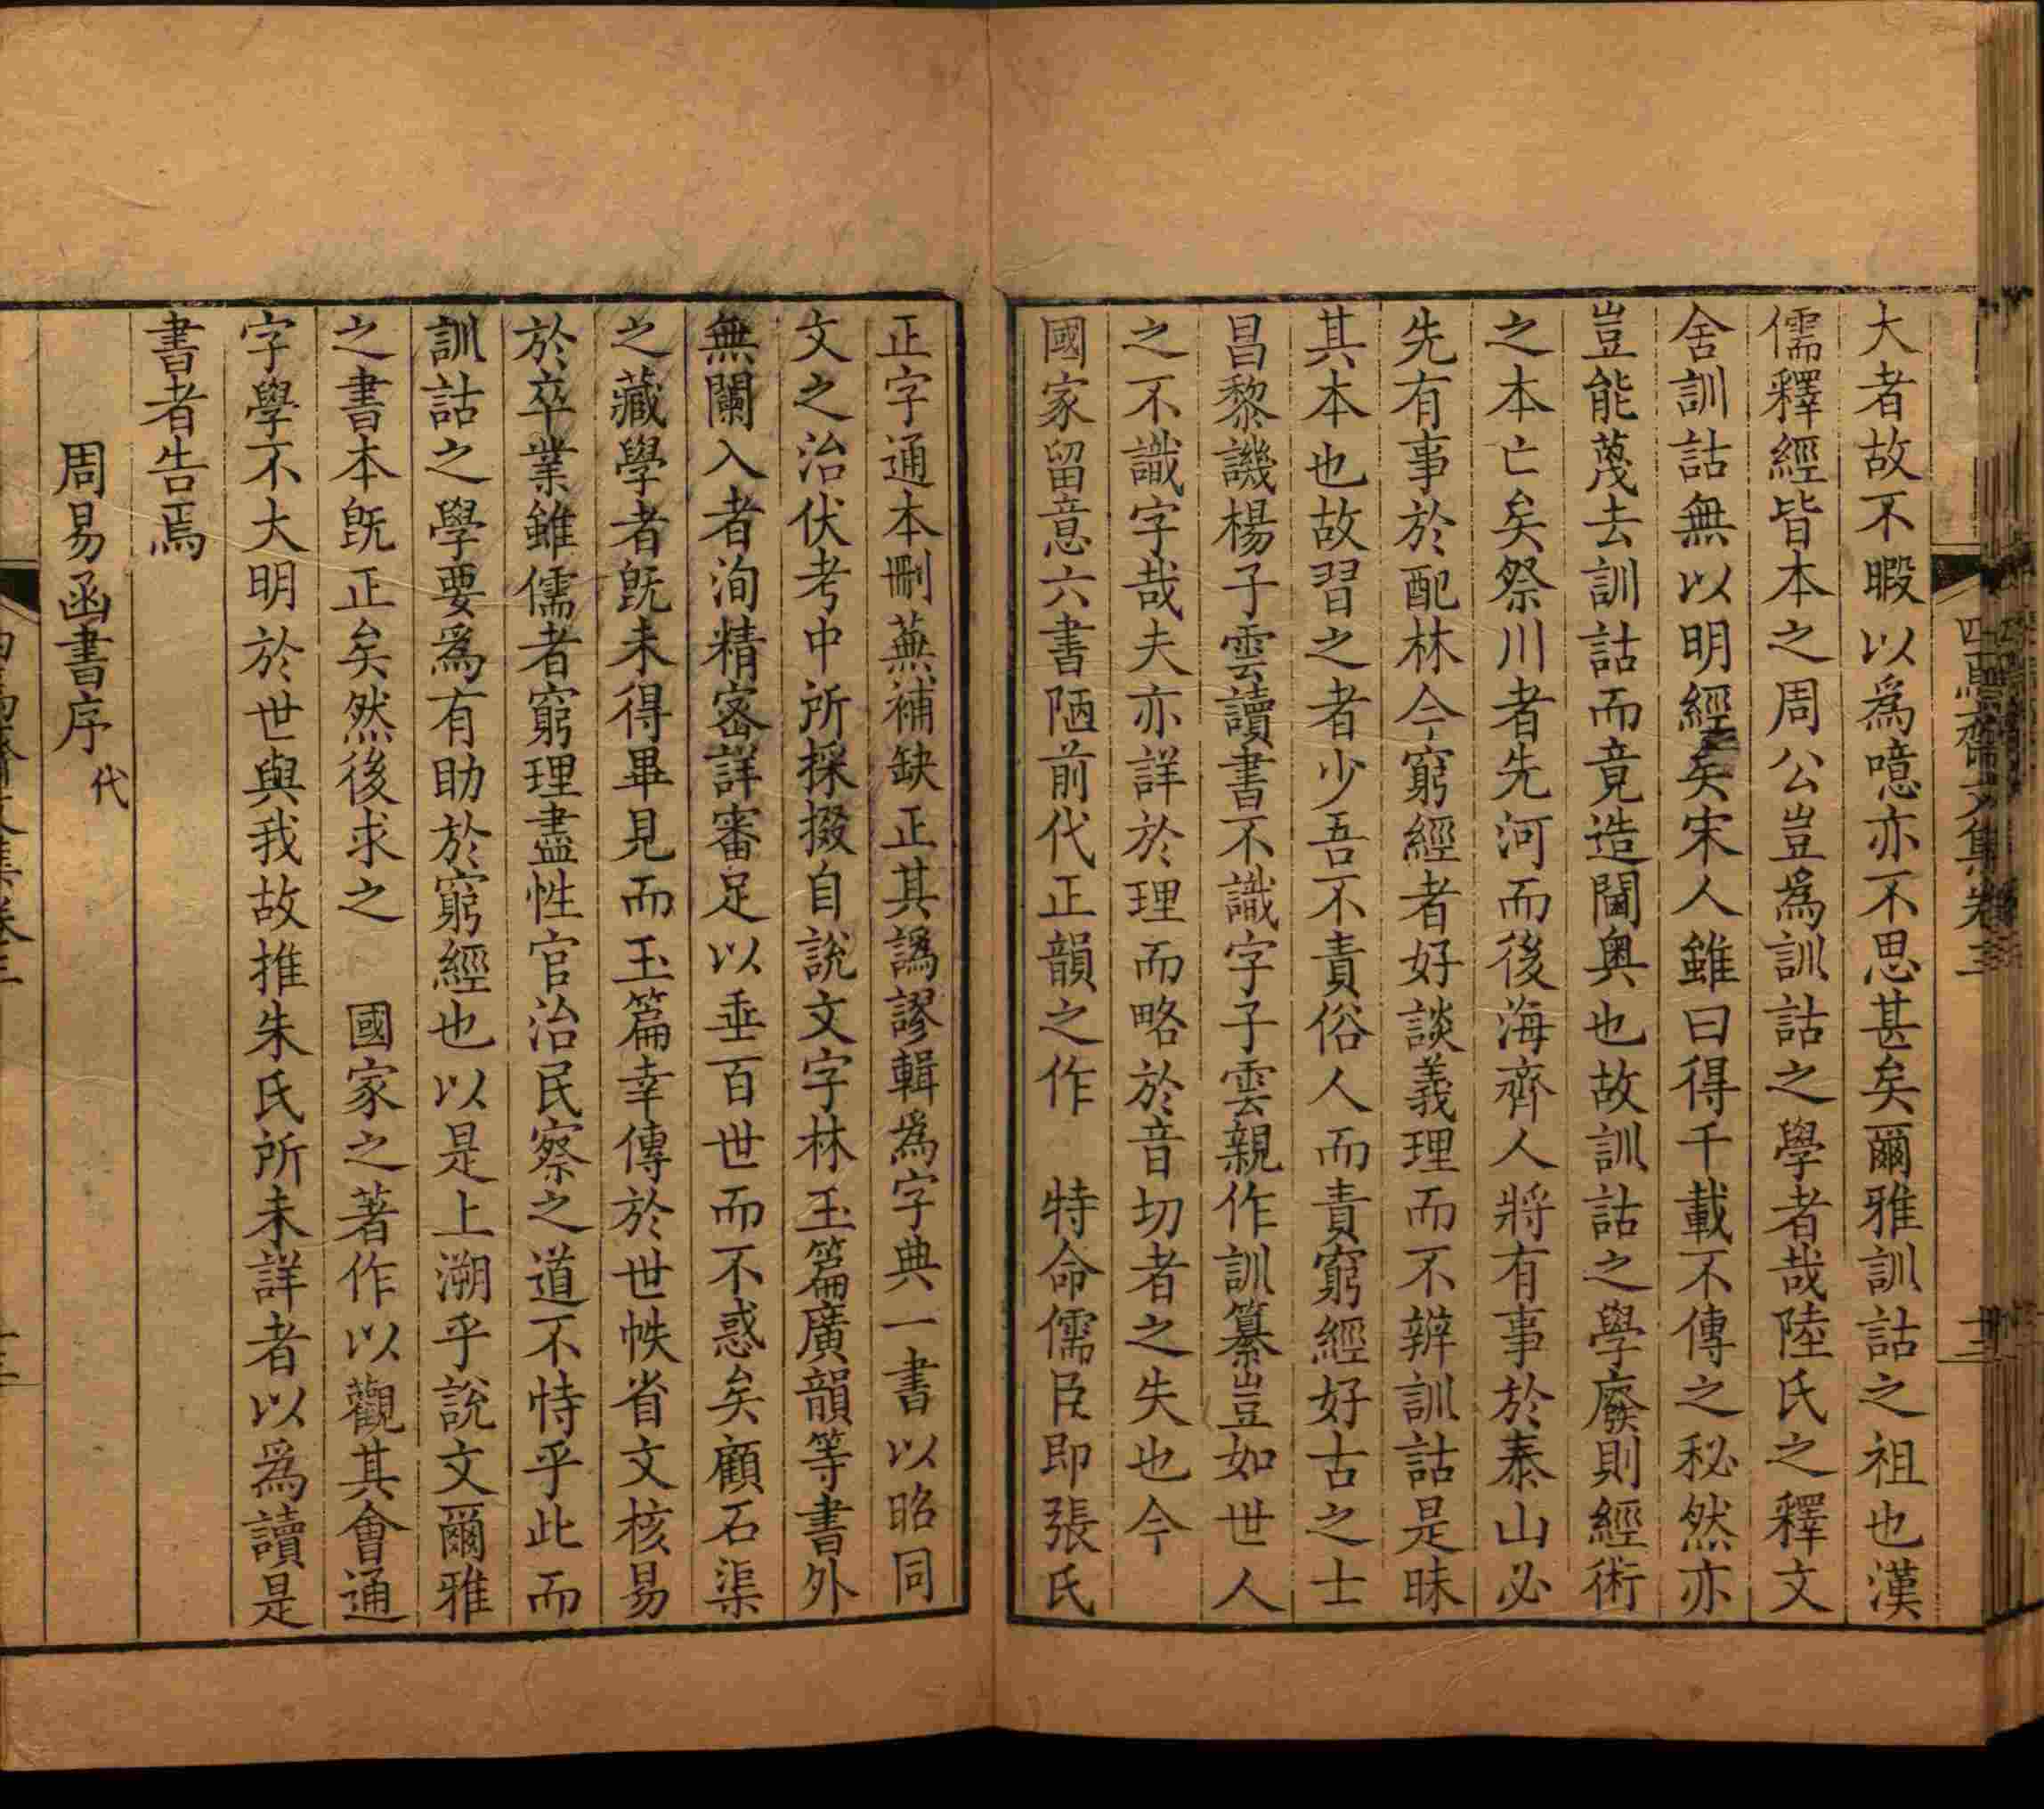 大者故不暇以爲噫亦不思甚矣爾雅訓詁之祖也漢
儒釋經皆本之周公豈爲訓詁之學者哉陸氏之釋文
舍訓詁無以明經矣宋人雖曰得千載不傳之秘然亦
豈能蔑去訓詁而竟造閫奥也故訓詁之學廢則經術
之本亡矣祭川者先河而後海齊人將有事於泰山必
先有事於配林今窮經者好談義理而不辨訓詁是昧
其本也故習之者少吾不責俗人而責窮經好古之士
昌黎譏楊子雲讀書不識字子雲親作訓纂豈如世人
之不識字哉夫亦詳於理而略於音切者之失也今
國家留意六書陋前代正韻之作　特命儒臣即張氏
正字通本刪蕪補缺正其譌謬輯爲字典一書以昭同
文之治伏考中所採掇自說文字林玉篇廣韻等書外
無闌入者洵精密詳審足以垂百世而不惑矣顧石渠
之藏學者旣未得畢見而玉篇幸傳於世帙省文核易
於卒業雖儒者窮理盡性官治民察之道不恃乎此而
訓詁之學要爲有助於窮經也以是上溯乎說文爾雅
之書本旣正矣然後求之　國家之著作以觀其會通
字學不大明於世與我故推朱氏所未詳者以爲讀是
書者告焉
周易函書序 代